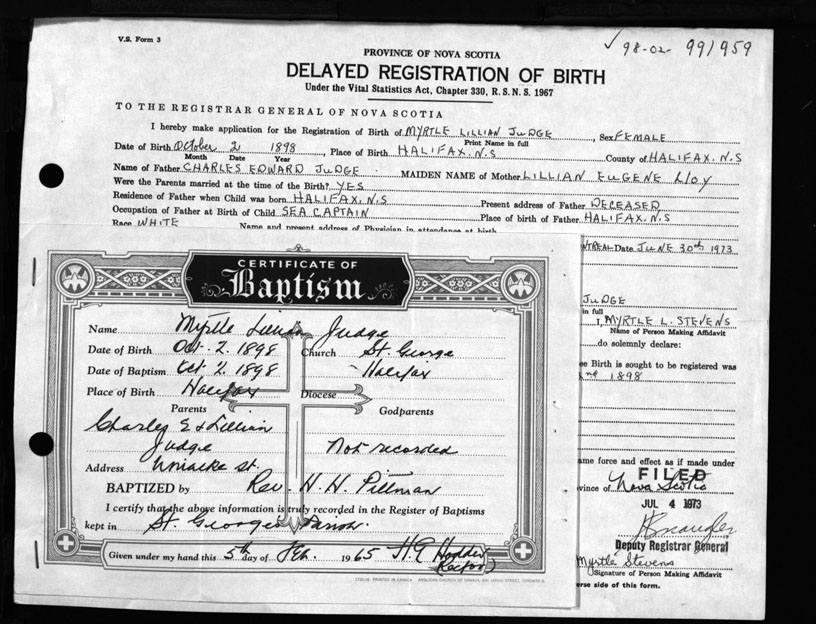 V.S. Form 3
✓ 98-02- 991959
PROVINCE OF NOVA SCOTIA
DELAYED REGISTRATION OF BIRTH
Under the Vital Statistics Act, Chapter 330, R.S.N.S. 1967
TO THE REGISTRAR GENERAL OF NOVA SCOTIA
I hereby make application for the Registration of Birth of MYRTLE LILLIAN JUDGE Sex FEMALE
Print Name in full
Date of Birth October 2 1898 Place of Birth HALIFAX, N.S County of HALIFAX, N.S
Month Date Year
Name of Father CHARLES EDWARD JUDGE MAIDEN NAME of Mother LILLIAN EUGENE LLOY
Were the Parents married at the time of the Birth? YES
Residence of Father when Child was born HALIFAX, N.S Present address of Father DECEASED
Occupation of Father at Birth of Child SEA CAPTAIN Place of birth of Father HALIFAX, N.S
Race WHITE Name and present address of Physician in attendance at birth
NTREAL Date JUNE 30th 1973
CERTIFICATE OF
Baptism
Name Myrtle Lillian Judge
Date of Birth Oct. 2. 1898 Church St. George
Date of Baptism Oct 2. 1898 Halifax
Place of Birth Halifax Diocese
Parents Godparents
Charles E & Lillian
Judge Not recorded
Address Uniacke St.
BAPTIZED by Rev. H. H. Pittman
I certify that the above information is truly recorded in the Register of Baptisms
kept in St. Georges Parish.
Given under my hand this 5th day of Feb. 1965 H. G Hodder
(Rector)
PRINTED IN CANADA ANGLICAN CHURCH OF CANADA, 600 JARVIS STREET, TORONTO 5.
JUDGE
in full
I, MYRTLE L. STEVENS
Name of Person Making Affidavit
do solemnly declare:
Birth is sought to be registered was
1898
ame force and effect as if made under
FILED
vince of Nova Scotia
JUL 4 1973
Deputy Registrar General
Myrtle Stevens
Signature of Person Making Affidavit
erse side of this form.